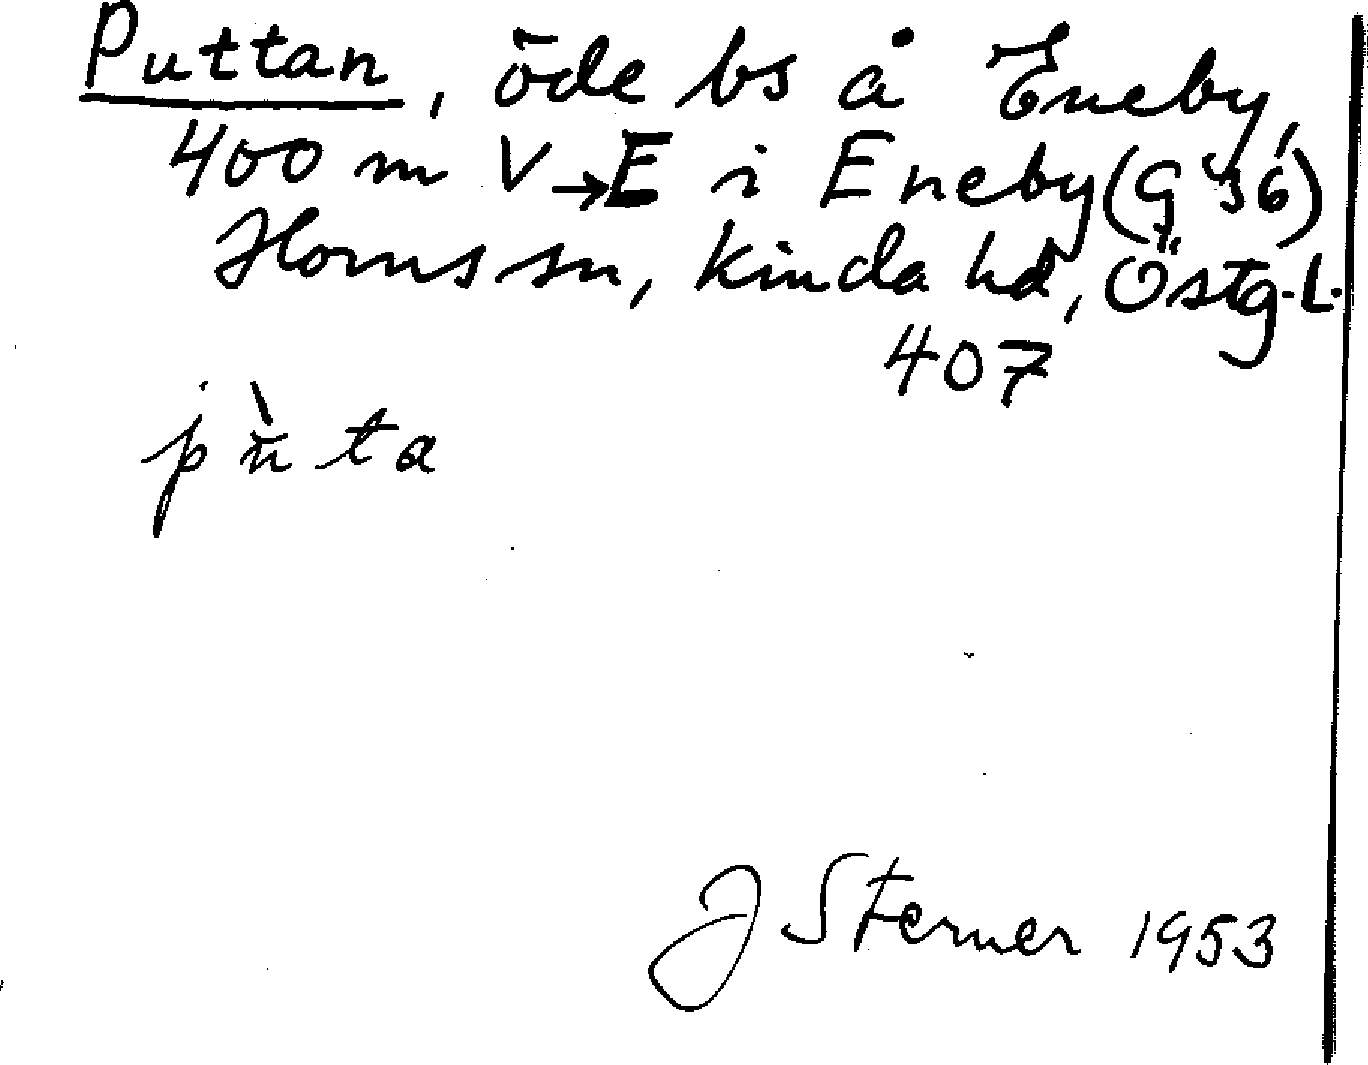 Puttan, öde bs å Eneby,
400 m V→E i Eneby (G 36)
Horns sn, Kinda hd, Östg. L.
407
pǜta
J Sterner 1953